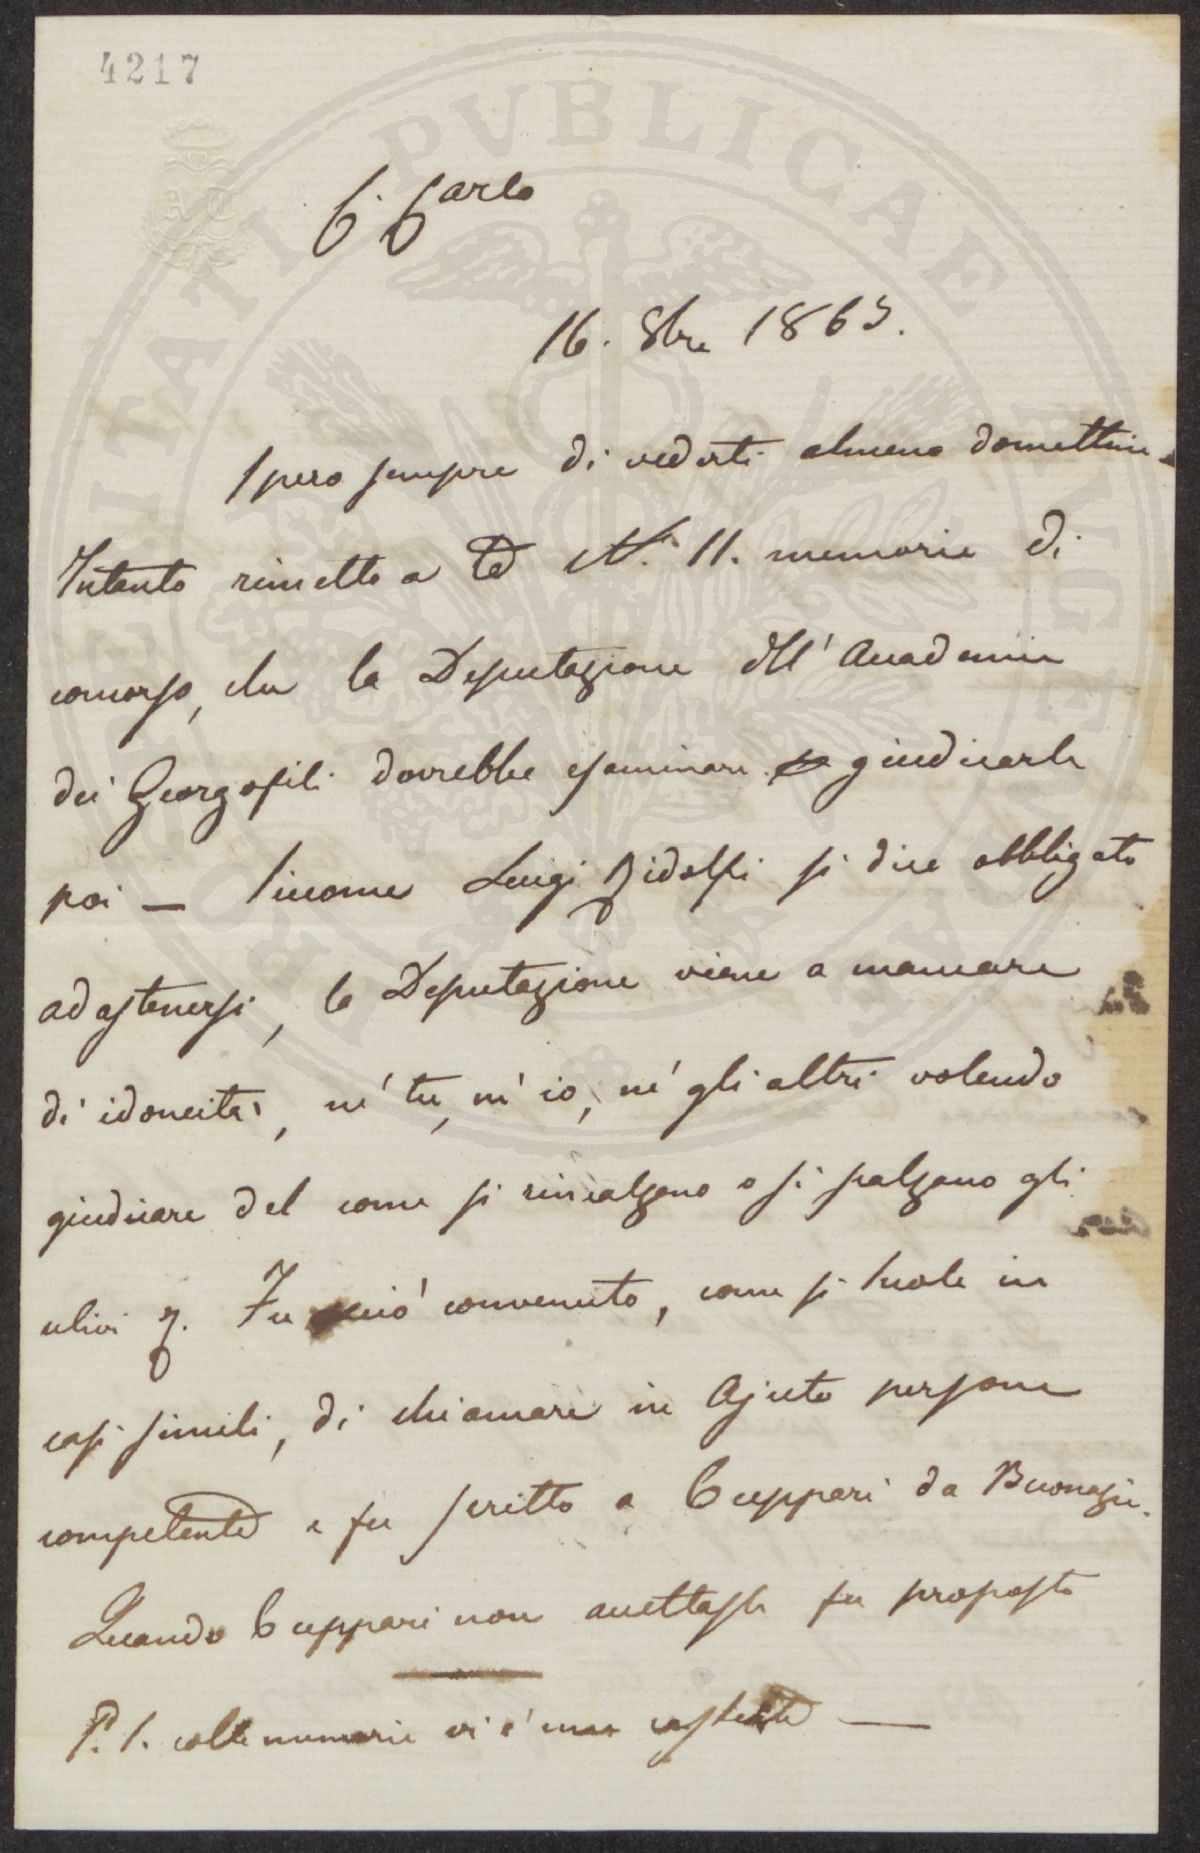 4217
C. Carlo
16. 8bre 1865.
Spero sempre di vederti almeno domattina
Intanto rimetto a te N. 11. memorie di
concorso, che la Deputazione dell'Accademia
dei Georgofili dovrebbe esaminare e giudicarle
poi — Siccome Luigi Ridolfi si dice obbligato
ad astenersi, la Deputazione viene a mancare
di idoneità, né tu, né io, né gli altri volendo
giudicare del come si rincalzano o si scalzano gli
ulivi &. Fu perciò convenuto, come si suole in
casi simili, di chiamare in ajuto persone
competenti e fu scritto a Cuppari da Buonazia.
Quando Cuppari non accettasse fu proposto
P. S. colle memorie vi è una